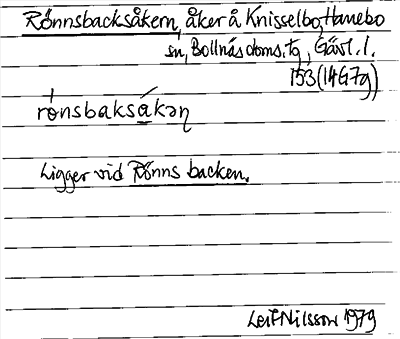 Rönnsbacksåkern, åker å Knisselbo, Hanebo
sn, Bollnäs doms. tg, Gävl. l.
153 (14G7g)
rǿnsbaksákəɳ
Ligger vid Rönnsbacken.
Leif Nilsson 1979